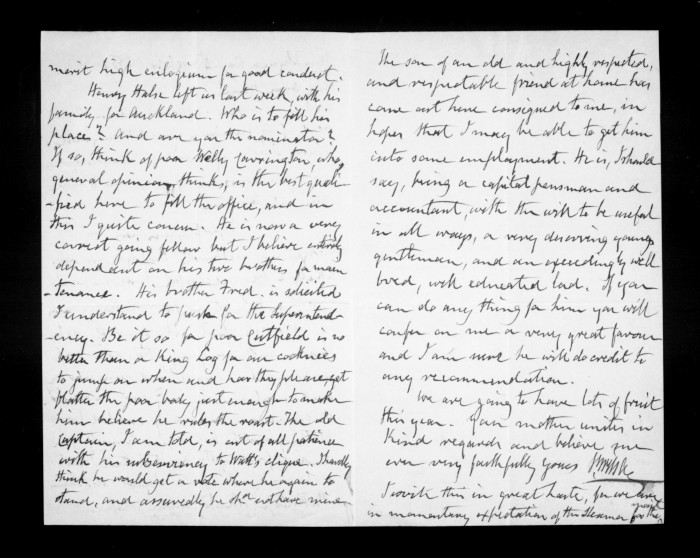 merit high eulogium for good conduct.
Henry Halse left us last week, with his
family, for Auckland. Who is to fill his
place? And are you the nominator?
If so, think of poor Welly Carrington, who,
general opinion, thinks, is the best quali
-fied here to fill the office, and in
this I quite concur. He is now a very
correct going fellow but I believe entirely
dependent on his two brothers for main
-tenance. His brother Fred. is solicited
I understand to push for the Superintend
-ency. Be it so for poor Cutfield is no
better than a King Log for our cocknies
to jump on when and how they please yet
flatter the poor body just enough to make
him believe he rules the roast. The old
Captain, I am told, is out of all patience
with his subserviency to Watt's clique. I hardly
think he would get a vote where he again to
stand, and assuredly he shd. not have mine
The son of an old and highly respected,
and respectable friend at home has
come out here consigned to me, in
hopes that I may be able to get him
into some employment. He is, I should
say, being a capital pensman and
accountant, with the will to be useful
in all ways, a very deserving young
gentleman, and an exceedingly well
bred, well educated lad. If you
can do any thing for him you will
confer on me a very great favour
and I am sure he will do credit to
any recommendation.
We are going to have lots of fruit
this year. Your mother unites in
kind regards and believe me
ever very faithfully yours
I write this in great haste, for we live
in momentary expectation of the Steamer from the